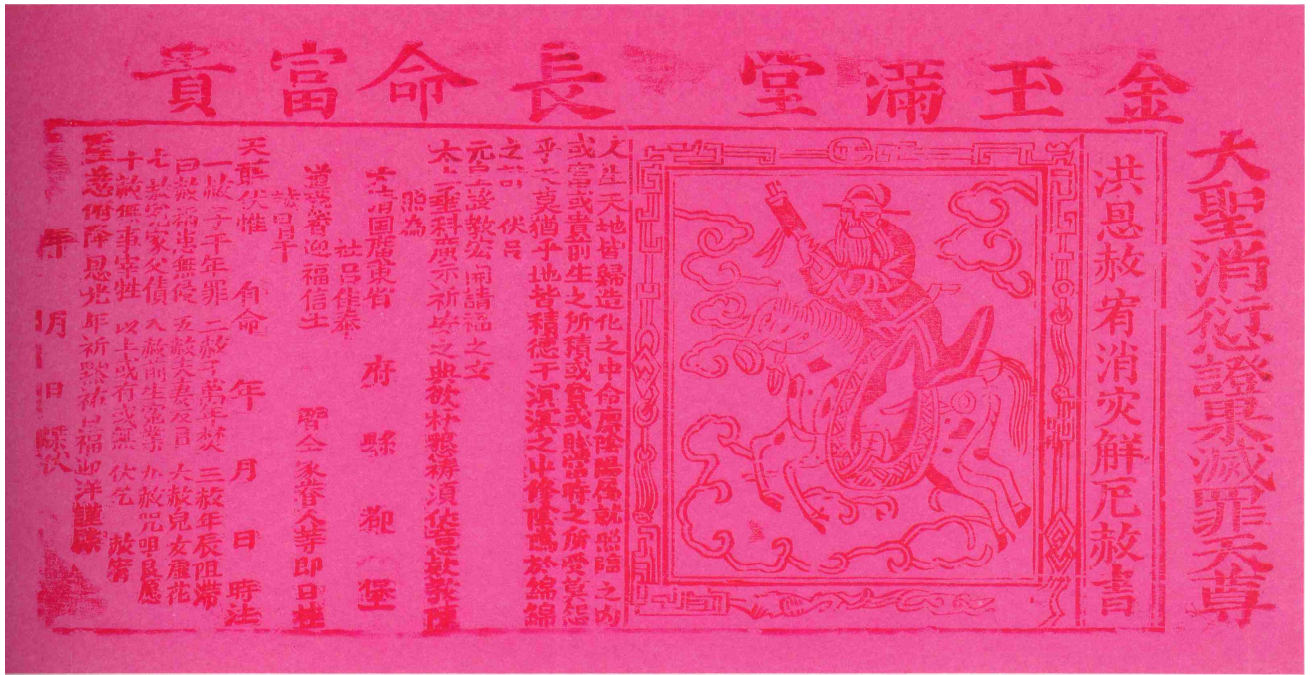 金玉滿堂 長命富貴
大聖消愆證果滅罪天尊
洪恩赦宥消灾解厄赦書
人生天地皆歸造化之中命廪陰陽俱就照臨之内
或富或貴前生之所積或貧或賤當時之所受莫怨
乎天莫猶乎地皆積德于溟漠之中修陰隲於綿綿
之前 伏呂
元皇設教宏開請福之文
太上垂科廣示祈安之典敘杼懇禱須
照為
大清国廣東省 府 縣 都 堡
社呂住奉
道 迎福信士 合家眷人等即日
天
恩伏惟 有命 年 月 日 時
一赦子千年罪 二赦子萬年禁 三赦年辰阻滯
四赦 患無侵 五赦夫妻反言 六赦兒女廉花
七赦冤家父債 八赦前生冤業 九赦咒咀良愿
十赦無事宰牲 以上或有或無 伏乞 赦宥
聖慈俯降恩光年祈默祐 福迎洋謹牒
年 月 日牒